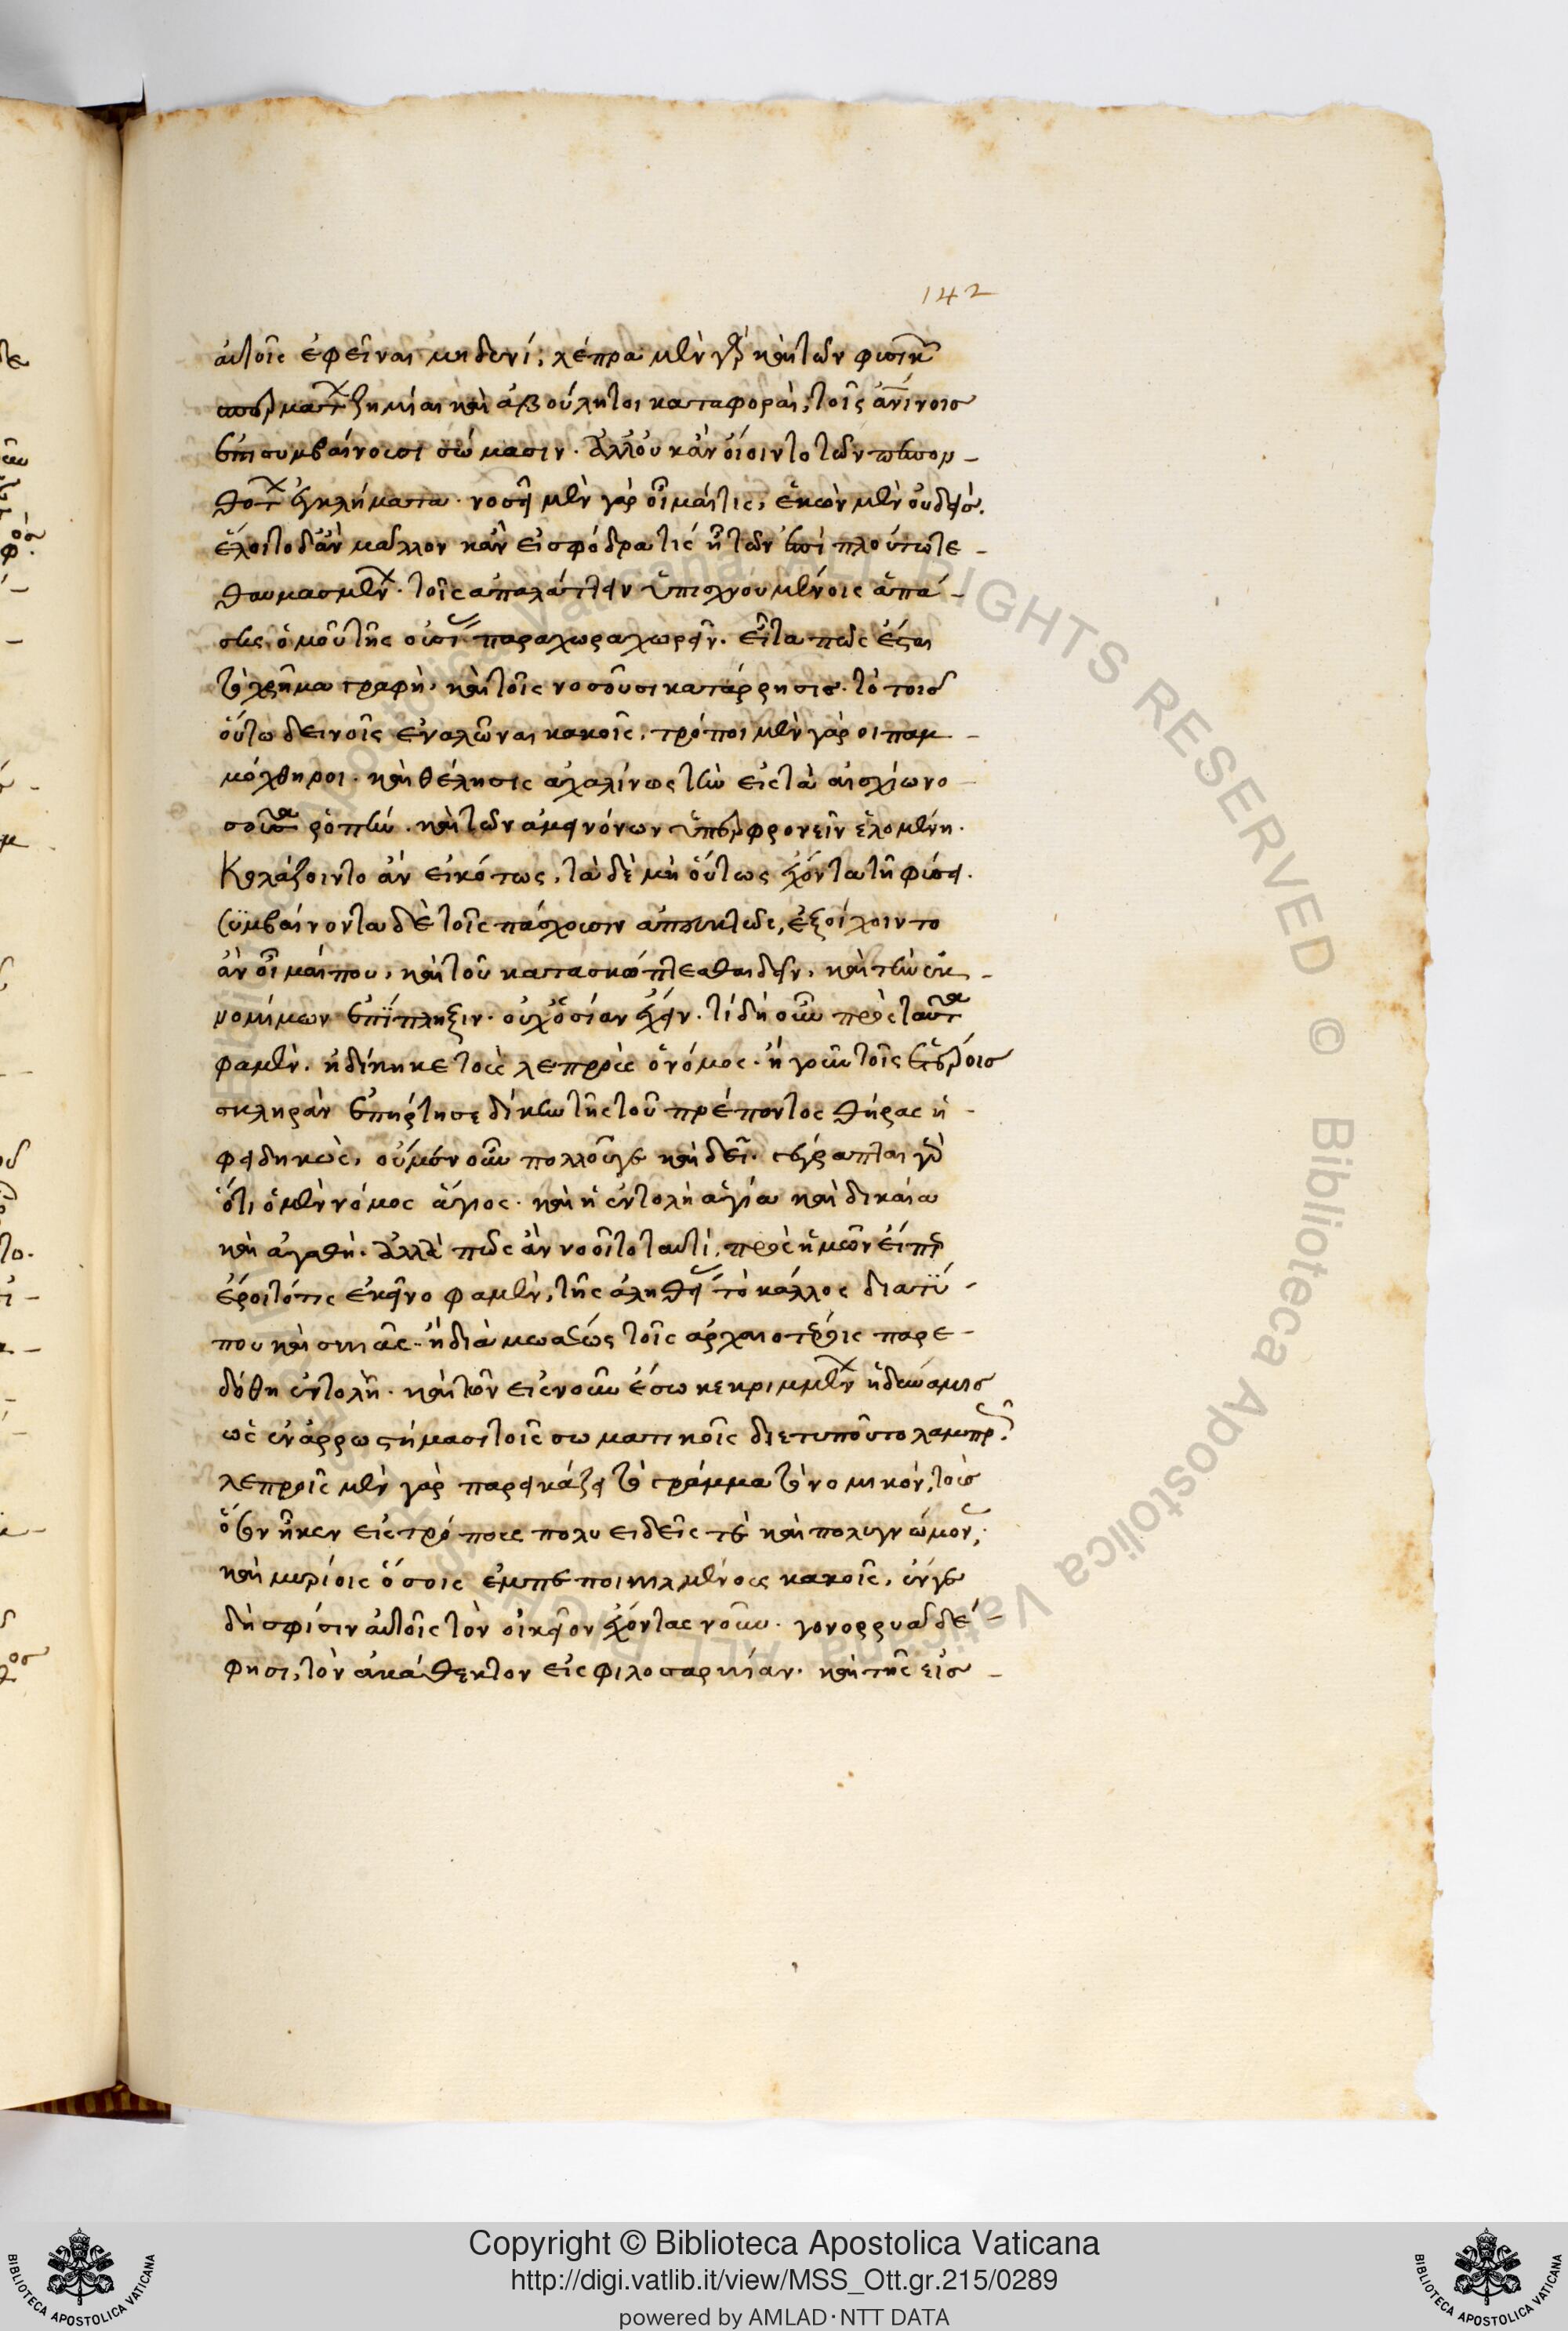 142
αὐτοῖς ἐφεῖναι μηδενί, λέπρα μὲν γὰρ καὶ τῶν φυσικῶν
σπερμάτων ζημίαι καὶ ἀβούλητοι καταφοραὶ, τοῖς ἀνθρωπίνοις
ἐπισυμβαίνουσι σώμασιν. ἀλλ' οὐκ ἂν οἴοιντο τῶν
ἐγκλήματα. νοσεῖ μὲν γὰρ οἶμαί τις, ἑκὼν μὲν οὐδείς.
ἕλοιτο δ' ἂν μᾶλλον κἂν εἰ σφόδρα τίς ἢ τῶν ἐπὶ πλούτω τε
θαυμασμένων. τοῖς ἀπαλάττειν ὑπισχνουμένοις ἁπά-
σης ὁμοῦ τῆς οὐσίας παραχωραχωρεῖν. εἶτα πῶς ἔσται
τὸ χρῆμα γραφὴ, καὶ τοῖς νοσοῦσι κατάρρησις. τὸ τοῖς
οὕτω δεινοῖς ἐναλῶναι κακοῖς, τρόποι μὲν γὰρ οἱ παμ-
μόχθηροι. καὶ θέλησις ἀχαλίνως τὴν εἰς τὰ αἰσχίω νο-
σοῦσα ῥοπὴν. καὶ τῶν ἀμεινόνων ὑπερφρονεῖν ἑλομένη.
Κολάζοιντο ἂν εἰκότως, τὰ δὲ μὴ οὕτως ἔχοντα τῇ φύσει.
συμβαίνοντα δὲ τοῖς πάσχουσιν ἀπευκτῶς, ἐξοίχοιντο
ἂν οἶμαί που, καὶ τοῦ κατασκώπτεσθαι δεῖν, καὶ τὴν ἐκ
νομίμων ἐπίπληξιν. οὐχ ὁσίαν ἔχειν. τί δὴ οὖν πρὸς ταῦτα
φαμὲν. ἠδίκηκε τοὺς λεπροὺς ὁ νόμος. ἢ γοῦν τοῖς ἑτέροις
σκληρὰν ἐπήρτησε δίκην τῆς τοῦ πρέποντος θήρας ἠ-
φειδηκὼς, οὐμὲν οὖν πολλοῦ γε καὶ δεῖ. γέγραπται γὰρ
ὅτι ὁ μὲν νόμος ἅγιος. καὶ ἡ ἐντολὴ ἁγία καὶ δικαία
καὶ ἀγαθή. ἀλλὰ πῶς ἂν νοοῖτο ταυτί, πρὸς ἡμῶν εἴπερ
ἔροιτό τις ἐκεῖνο φαμὲν, τῆς ἀληθείας τὸ κάλλος διατύ-
που καὶ σκιᾶς. ἡ διὰ μωσέως τοῖς ἀρχαιοτέροις παρε-
δόθη ἐντολὴ. καὶ τῶν εἰς νοῦν ἔσω κεκριμμένων ἡ δύναμις
ὡς ἐν ἀρρωστήμασι τοῖς σωματικοῖς διετυποῦτο λαμπρῶς.
λεπροῖς μὲν γὰρ παρεικάζει τὸ γράμμα τὸ νομικόν, τοὺς
ὅθεν ἧκεν εἰς τρόπους πολυειδεῖς τὲ καὶ πολυγνώμονας,
καὶ μυρίοις ὅσοις ἐμπεποικιλμένους κακοῖς, ἐν γε
δὴ σφίσιν αὐτοῖς τὸν οἰκεῖον ἔχοντας νοῦν. γονορρυᾶ δέ
φησι, τὸν ἀκάθεκτον εἰς φιλοσαρκίαν. καὶ τῆς εἰσ-
Copyright © Biblioteca Apostolica Vaticana
http://digi.vatlib.it/view/MSS_Ott.gr.215/0289
powered by AMLAD·NTT DATA